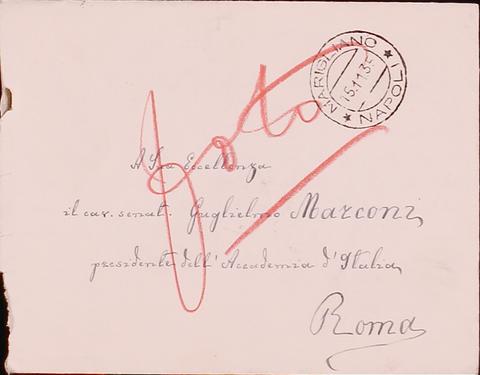 MARIGLIANO
NAPOLI
15.11.35
foto
A Sua Eccellenza
il cav. senat. Guglielmo Marconi,
presidente dell'Accademia d'Italia,
Roma